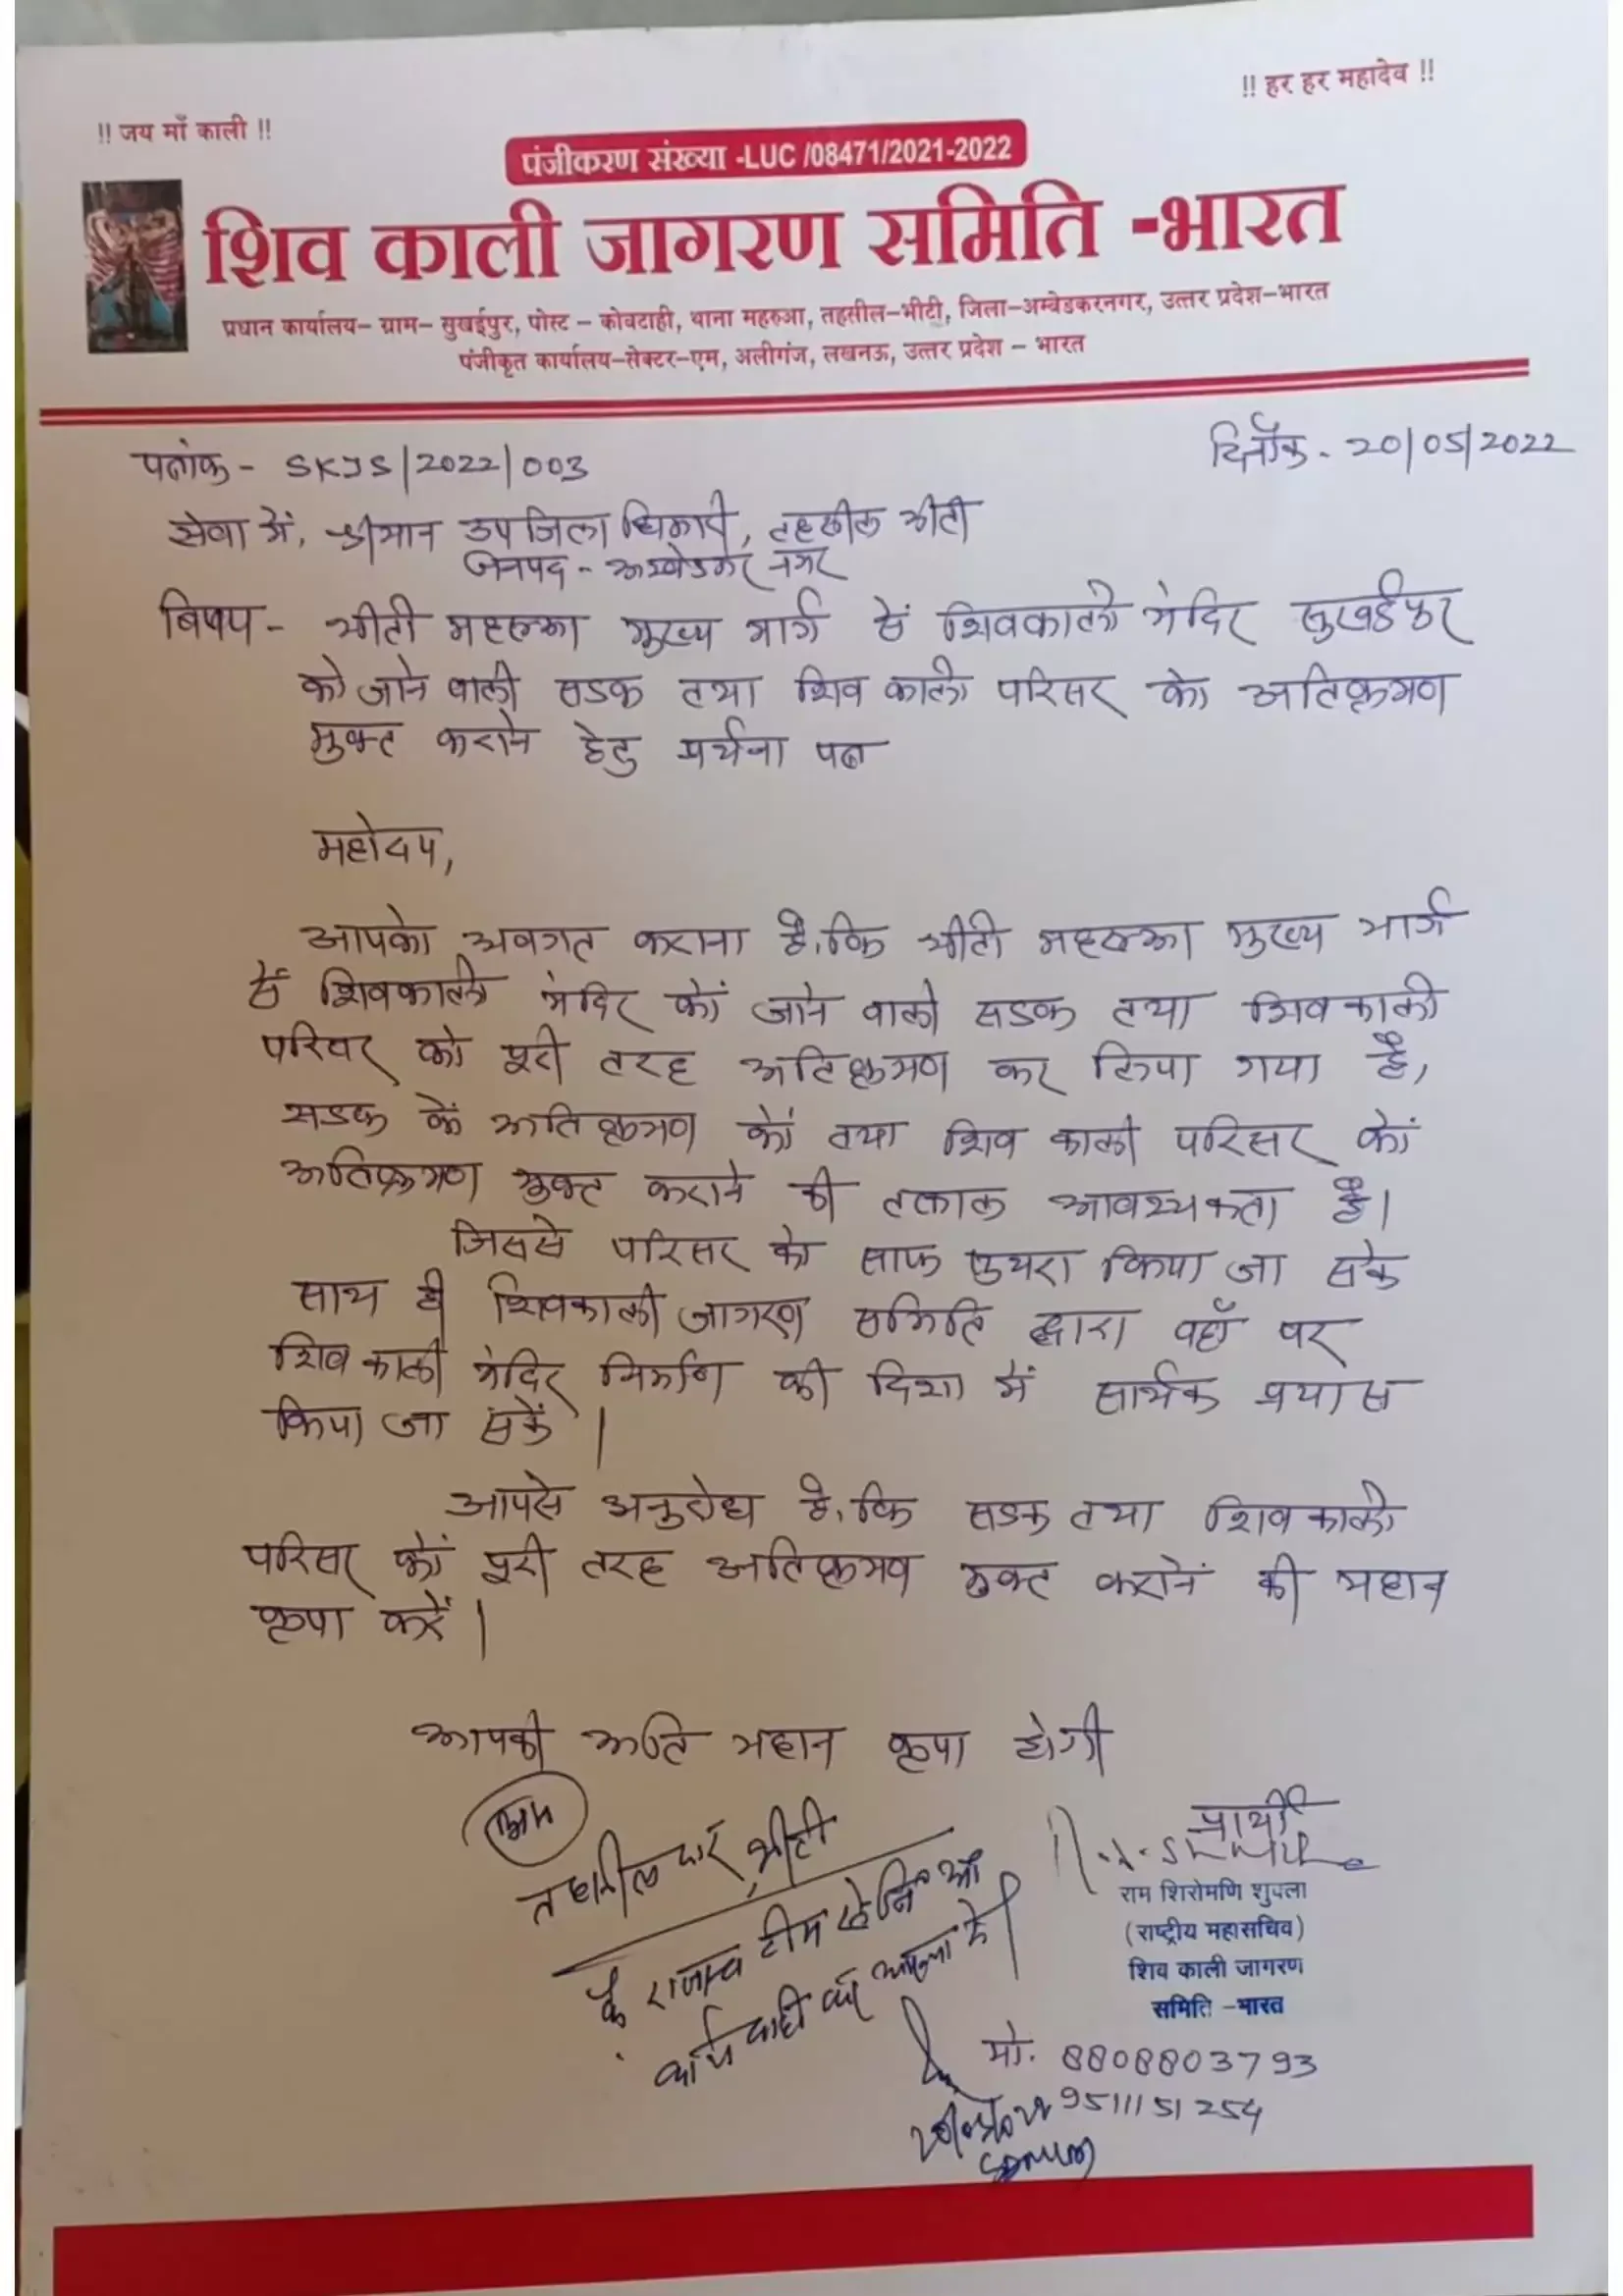 !! जय माँ काली !!
!! हर हर महादेव !!
पंजीकरण संख्या -LUC /08471/2021-2022
शिव काली जागरण समिति -भारत
प्रधान कार्यालय– ग्राम– सुखईपुर, पोस्ट – कोवटाही, थाना महरुआ, तहसील–भीटी, जिला–अम्बेडकरनगर, उत्तर प्रदेश–भारत
पंजीकृत कार्यालय–सेक्टर–एम, अलीगंज, लखनऊ, उत्तर प्रदेश – भारत
पत्रांक - SKJS/2022/003
दिनाँक - 20/05/2022
सेवा में, श्रीमान उपजिलाधिकारी, तहसील भीटी
जनपद - अम्बेडकर नगर
बिषय - भीटी महरुआ मुख्य मार्ग सें शिवकाली मंदिर सुखईपुर
को जाने वाली सडक तथा शिव काली परिसर को अतिक्रमण
मुक्त कराने हेतु प्रर्थना पत्र
महोदय,
आपको अवगत कराना है, कि भीटी महरुआ मुख्य मार्ग
सें शिवकाली मंदिर कों जाने वाली सडक तथा शिवकाली
परिसर को पूरी तरह अतिक्रमण कर लिया गया है,
सडक कें अतिक्रमण कों तथा शिव काली परिसर कों
अतिक्रमण मुक्त कराने की तत्काल आवश्यकता है।
जिससे परिसर को साफ सुथरा किया जा सके
साथ ही शिवकाली जागरण समिति द्वारा वहाँ पर
शिव काली मंदिर निर्माण की दिशा में सार्थक प्रयास
किया जा सकें।
आपसे अनुरोध है, कि सडक तथा शिवकाली
परिसर कों पूरी तरह अतिक्रमण मुक्त करानें की महान
कृपा करें।
आपकी अति महान कृपा होगी
प्रार्थी
तहसीलदार, भीटी
राजस्व टीम
कार्यवाही
राम शिरोमणि शुक्ला
(राष्ट्रीय महासचिव)
शिव काली जागरण
समिति –भारत
मो. 8808803793
9511151254